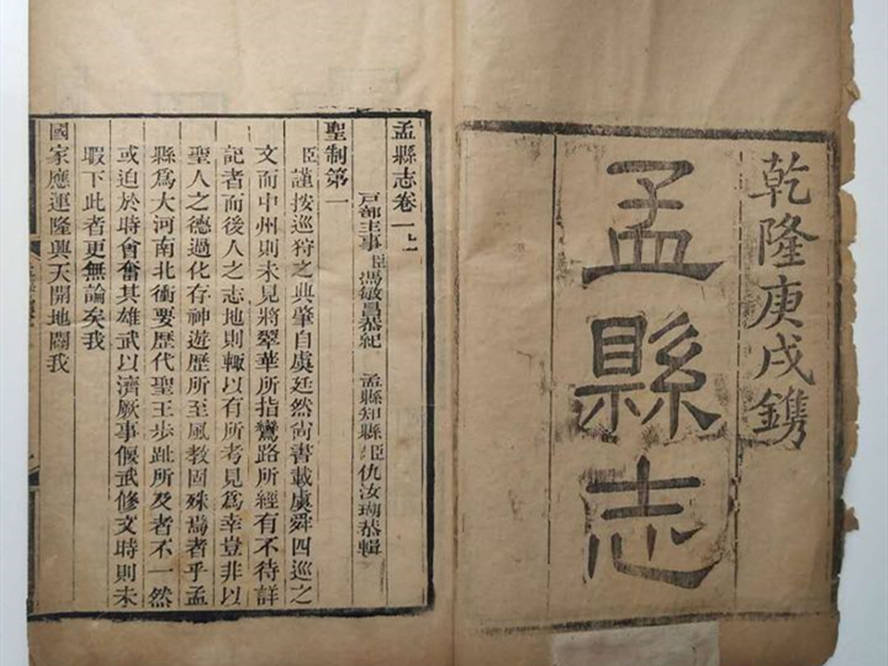 乾隆庚戌鐫
孟縣志
孟縣志卷一上
戶部主事臣馮敏昌恭紀 孟縣知縣臣仇汝瑚恭輯
聖制第一
臣謹按巡狩之典肇自虞廷然尙書載虞舜四巡之
文而中州則未見將翠華所指鸞路所經有不待詳
記者而後人之志地則輒以有所考見爲幸豈非以
聖人之德過化存神遊歷所至風教固殊焉者乎孟
縣爲大河南北衝要歷代聖王步趾所及者不一然
或迫於時會奮其雄武以濟厥事偃武修文時則未
暇下此者更無論矣我
國家應運隆興天開地闢我